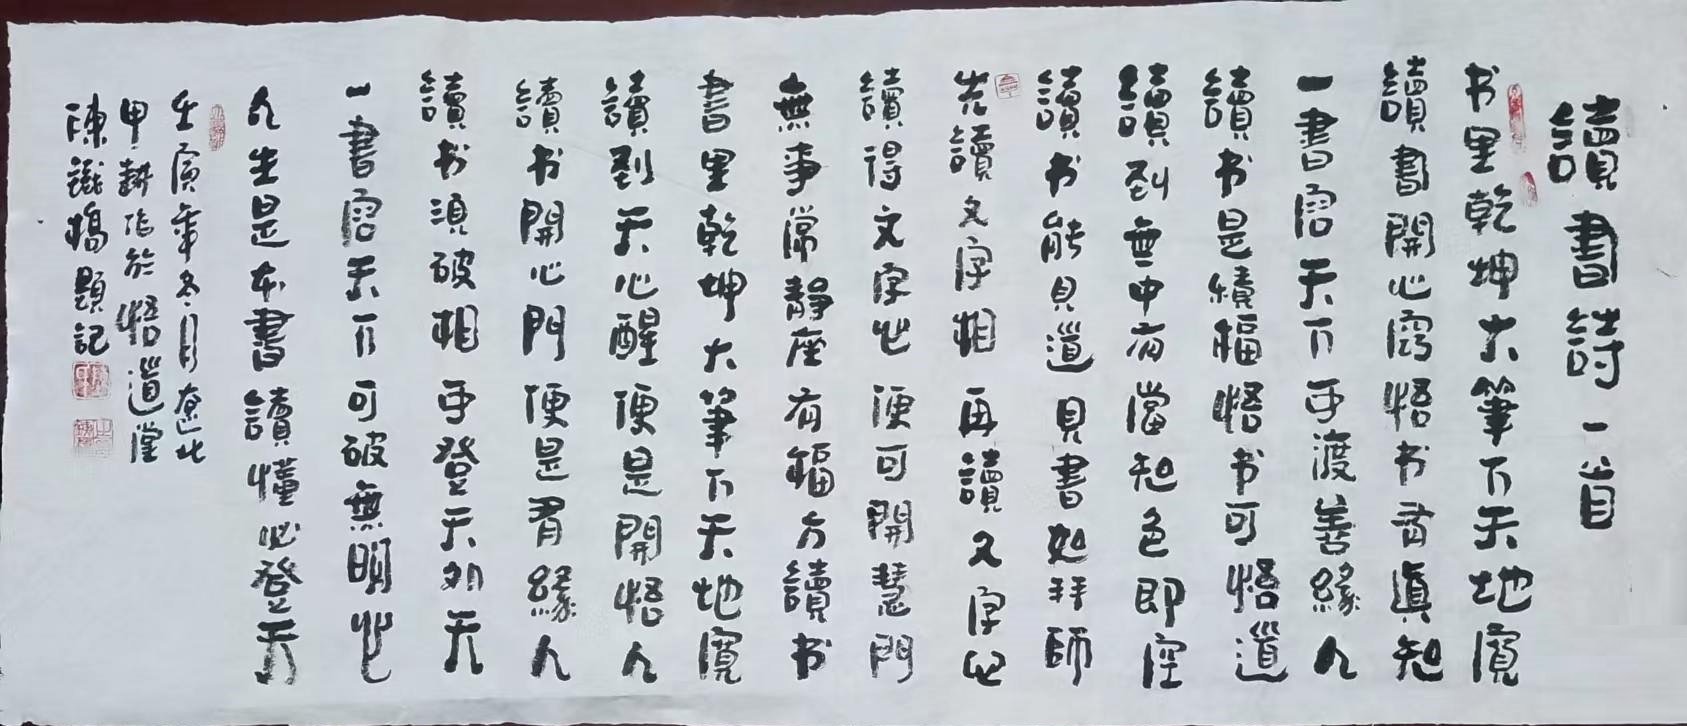 讀書詩一首
书里乾坤大筆下天地寬
讀書開心窍悟书有真知
一書容天下可渡善緣人
讀书是續福悟书可悟道
讀到無中有當知色即空
讀书能見道見書如拜師
先讀文字相再讀文字心
讀得文字心便可開慧門
無事常靜座有福方讀书
書里乾坤大筆下天地寬
讀到天心醒便是開悟人
讀书開心門便是有緣人
讀书須破相可登天外天
一書容天下可破無明心
人生是本書讀懂必登天
壬寅年冬月遼北
甲耕作於悟道堂
陳鐵橋題記